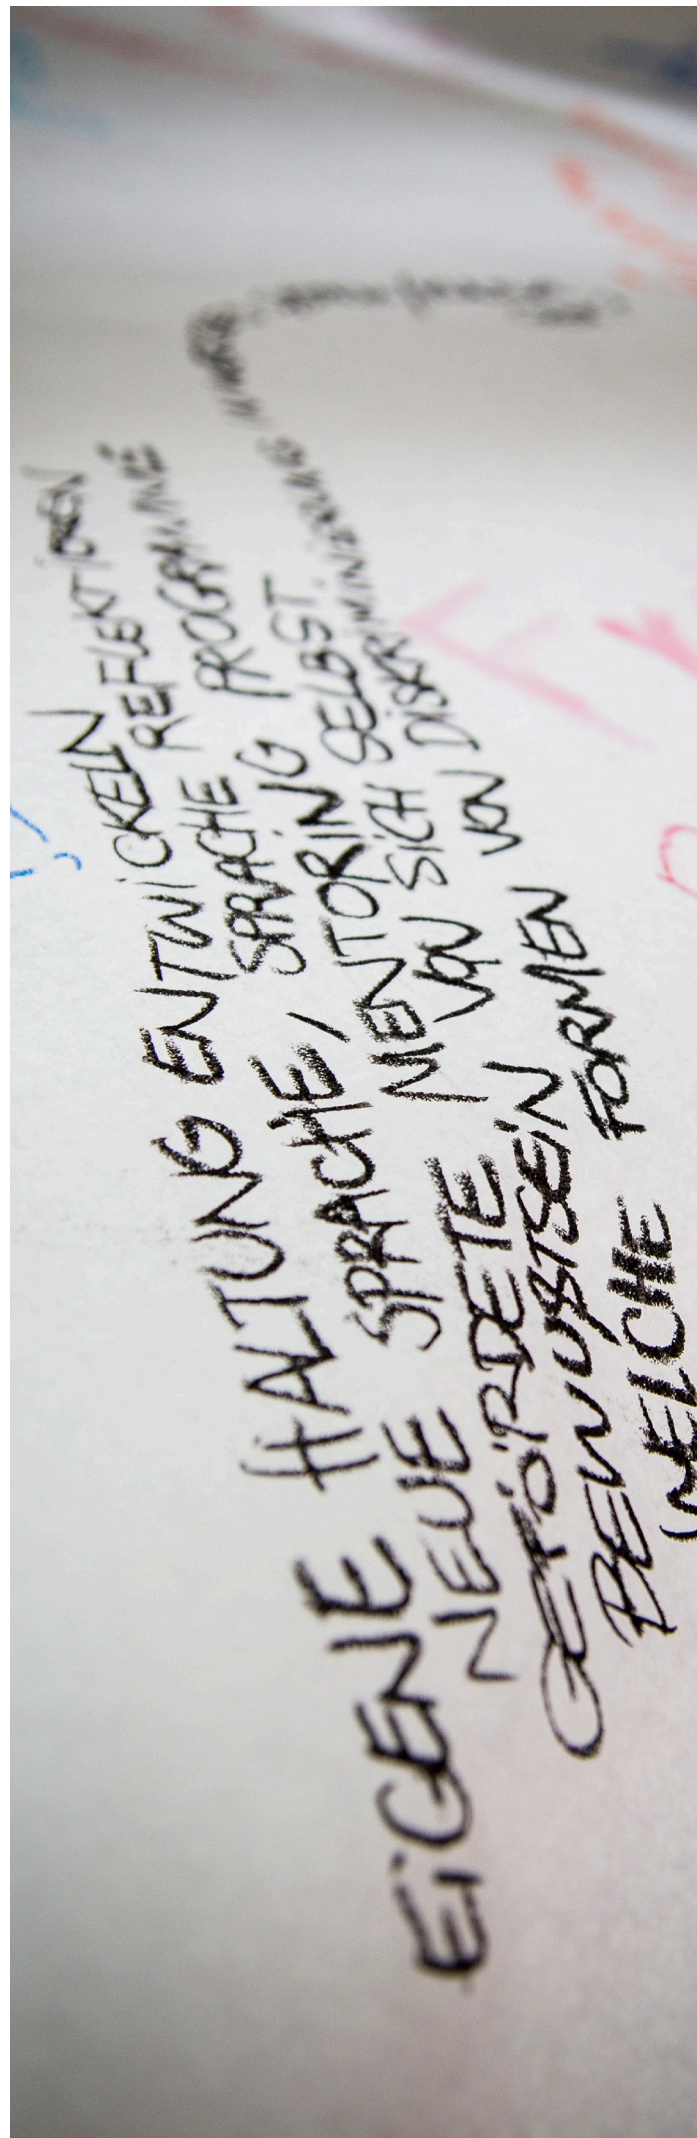 EIGENE HALTUNG ENTWICKELN
NEUE SPRACHE, SPRACHE REFLEKTIEREN
GEFÖRDETE MENTORING PROGRAMME
BEWUSTSEIN VON SICH SELBST.
WELCHE FORMEN VON DISKRIMINIERUNG